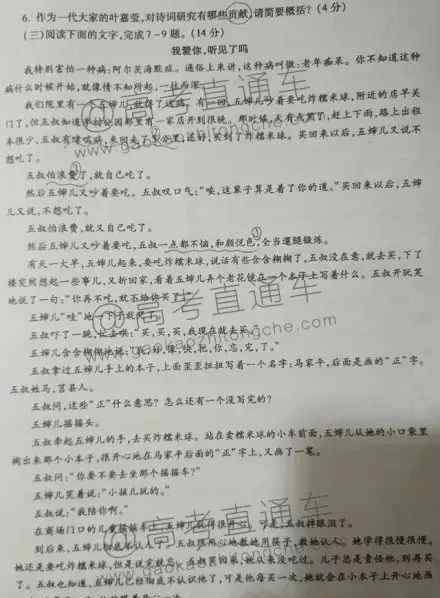 6. 作为一代大家的叶嘉莹,对诗词研究有哪些贡献,请简要概括?(4分)
(三)阅读下面的文字,完成7~9题。(14分)
我爱你,听见了吗
我特别害怕一种病:阿尔茨海默症。通俗上来讲,这种病叫做:老年痴呆。你不知道这种
病什么时候开始,就像情不知所起,一往而深。
我们院里有一个五婶儿,就得了这病。有一回,五婶儿吵着要吃炸糯米球,附近的店早关
门了,但五叔知道
本很少,五叔有 买到了炸糯米球。买回来以后,五婶儿又说不
想吃了。
五叔怕浪费,就自己吃了。
然后五婶儿又吵着要吃。五叔叹口气:“唉,这辈子算是着了你的道。”买回来以后,五婶
儿又说,不想吃了。
五叔怕浪费,就又自己吃了。
然后五婶儿又吵着要吃,五叔一点都不恼,和颜悦色,全当遛腿锻炼。
有天一大早,五婶儿起来,要吃炸糯米球,说话有些含含糊糊了,五叔没在意,就去买,下了
楼突然想起一些事儿,又折回家,看着五婶儿弄个老花镜在一个本子上写着什么。五叔开玩笑
地说了一句:“你再不吃,就不给你买了!”
五婶儿“哇”地一下子就哭了。
五叔吓了一跳,忙去哄:“买,买,买,我现在就去买。”
五婶儿含含糊糊地说:“我,好,像,快,把,你,忘,完,了。”
五叔拿过五婶儿手上的本子,上面歪歪扭扭写着一个名字:马家平,后面是画的“正”字。
五叔姓马,莒县人。
五叔问,这些“正”什么意思?怎么还有一个没写完的?
五婶儿摇摇头。
五叔牵起五婶儿的手,去买炸糯米球。站在卖糯米球的小车前面,五婶儿从她的小口袋里
掏出来那个小本子,很开心地在马家平后面的“正”字上,又画了一笔。
五叔问:“你要不要去坐那个摇摇车?”
五婶儿笑着说:“小孩儿玩的。”
五叔说:“我陪你啊。”
在商场门口的儿童摇摇车 五婶儿玩得很开心,可是,五叔却眼泪了。
到后来,五婶儿彻底不认人了。五叔很耐心地教她用筷子,教她认人。她学得很慢很慢。
她还是要吃炸糯米球,但是说完就忘。五叔买回来,她从来没吃过。儿子总是责怪他,别再买
了。五叔也知道,五婶儿已经彻底不认识他了,可是他每买一次,她就会在小本子上开心地画